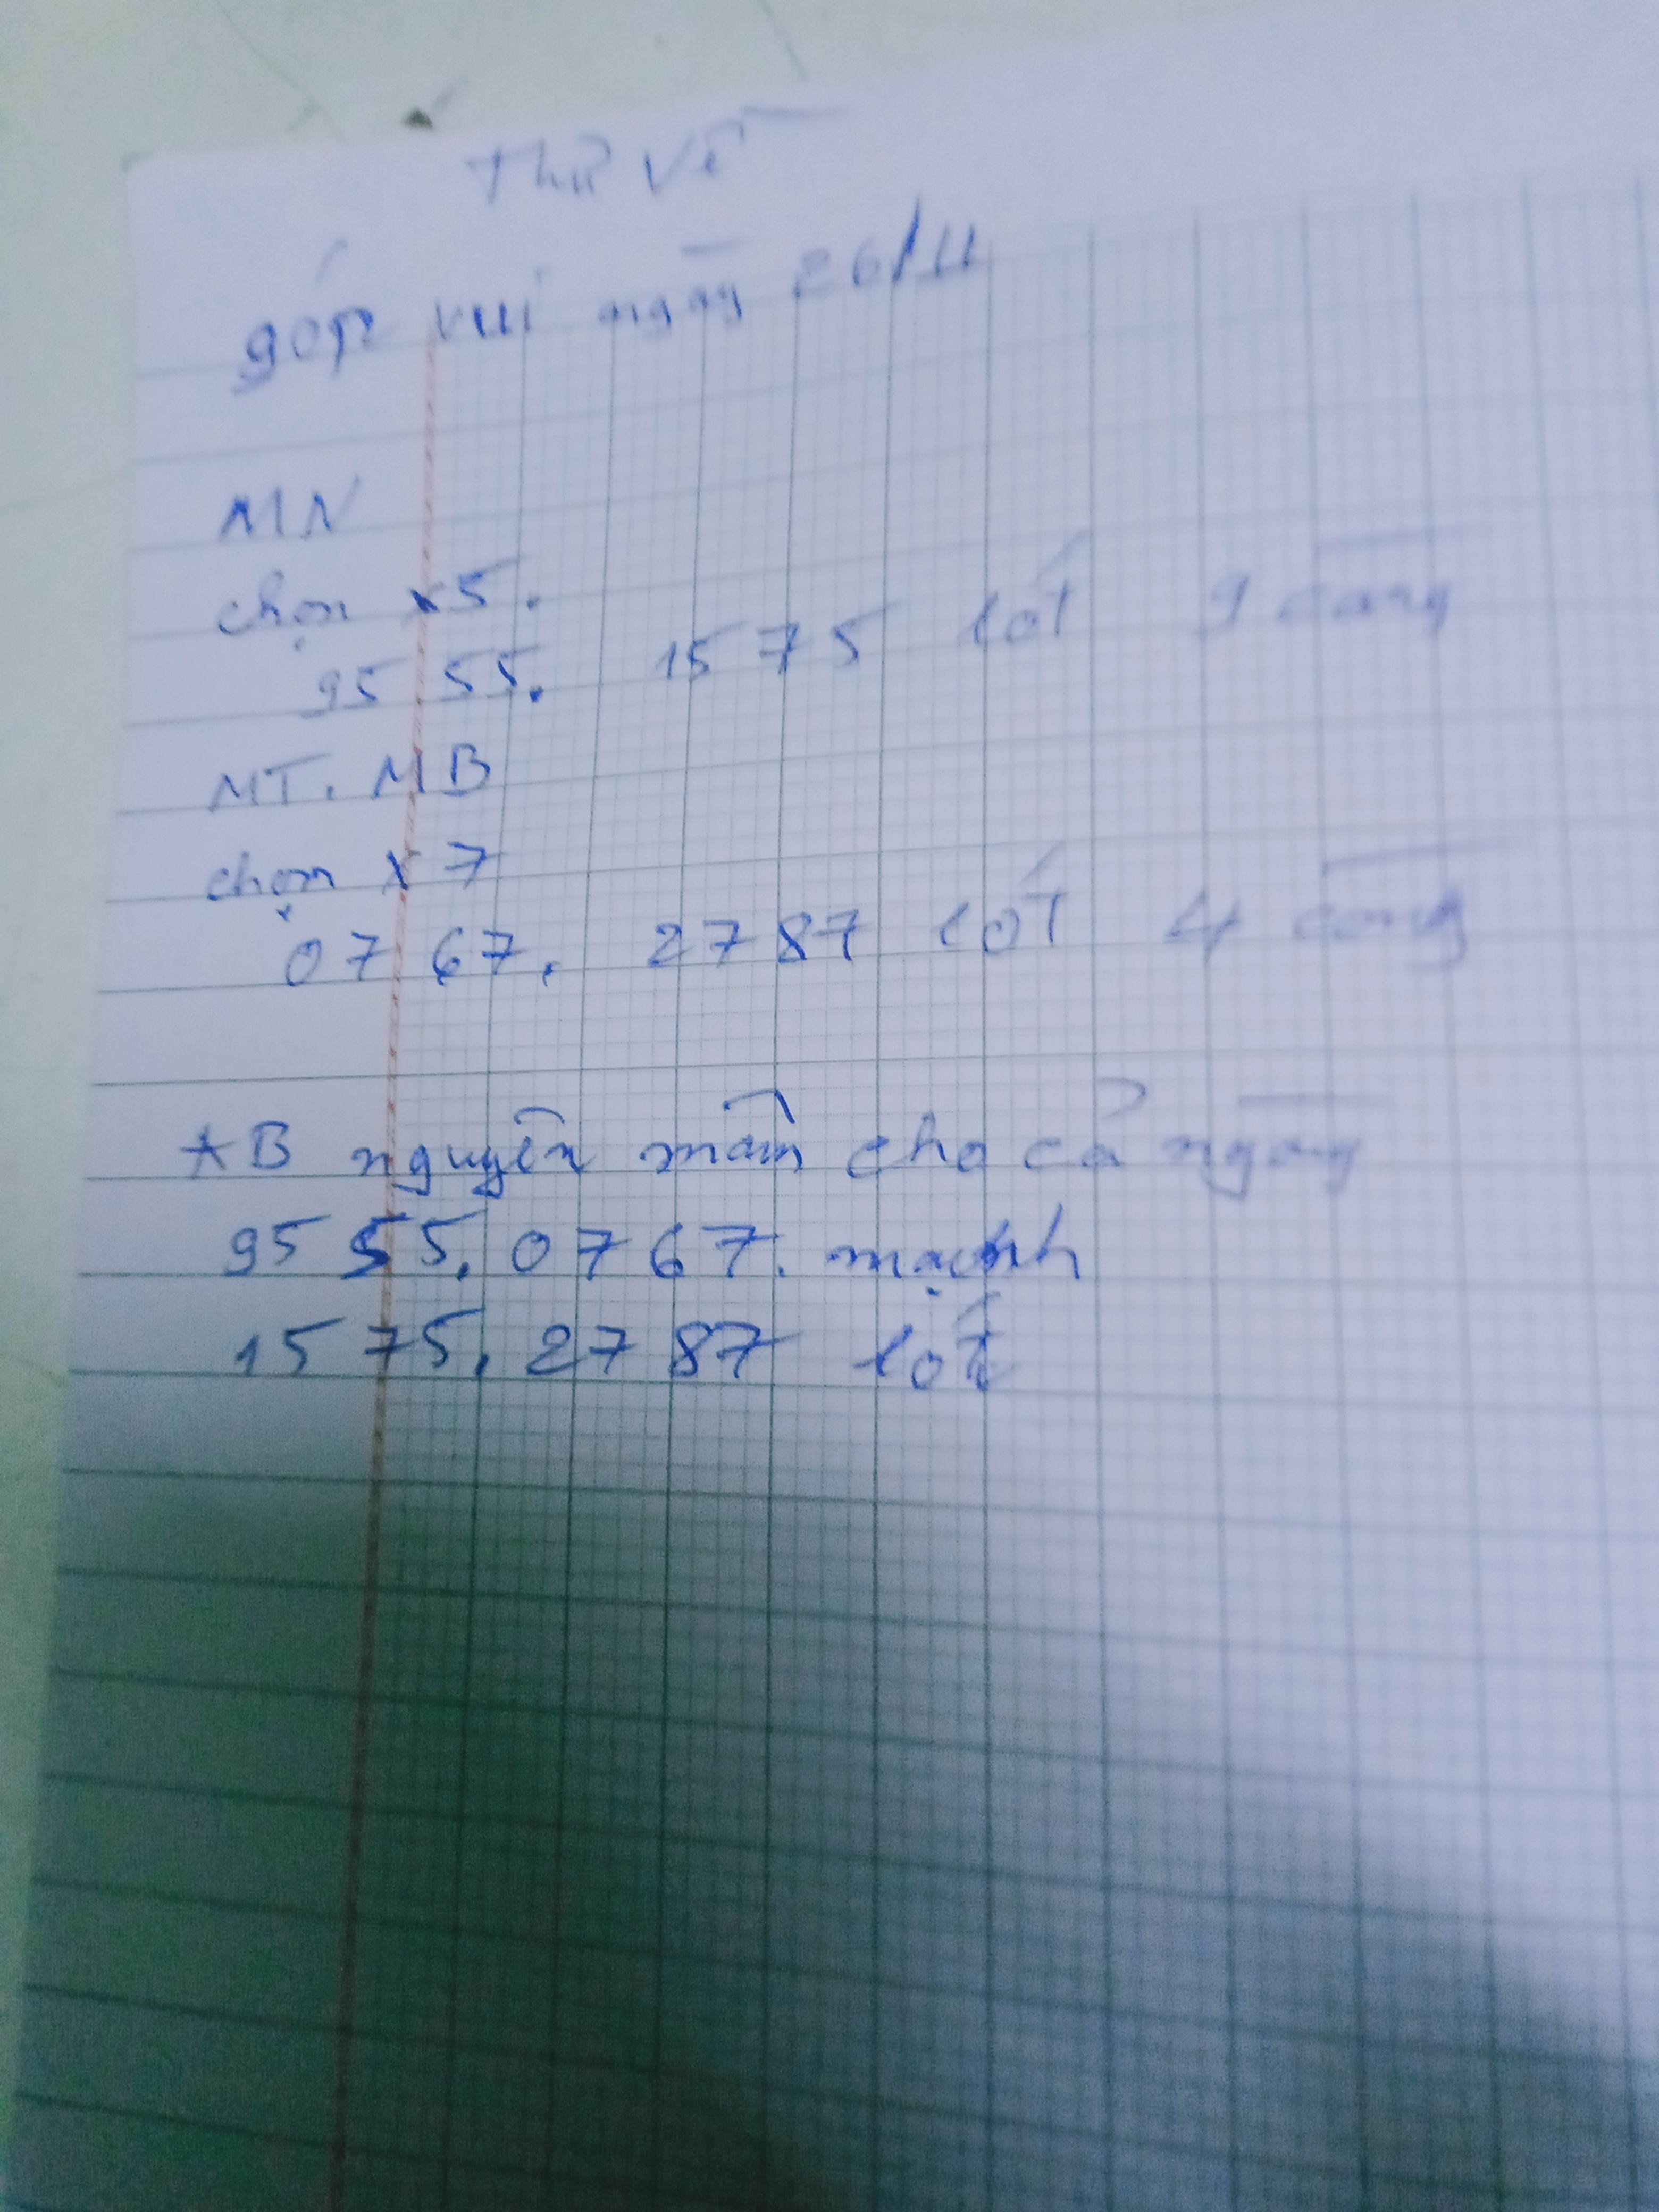 Thử Vẽ
góp vui ngày 26/11
MN
chọn x5.
95 55. 15 75 lót 9 càng
MT. MB
chọn x7
07 67. 27 87 lót 4 càng
*B nguyên mâm cho cả ngày
95 55. 07 67. mạnh
15 75. 27 87 lót